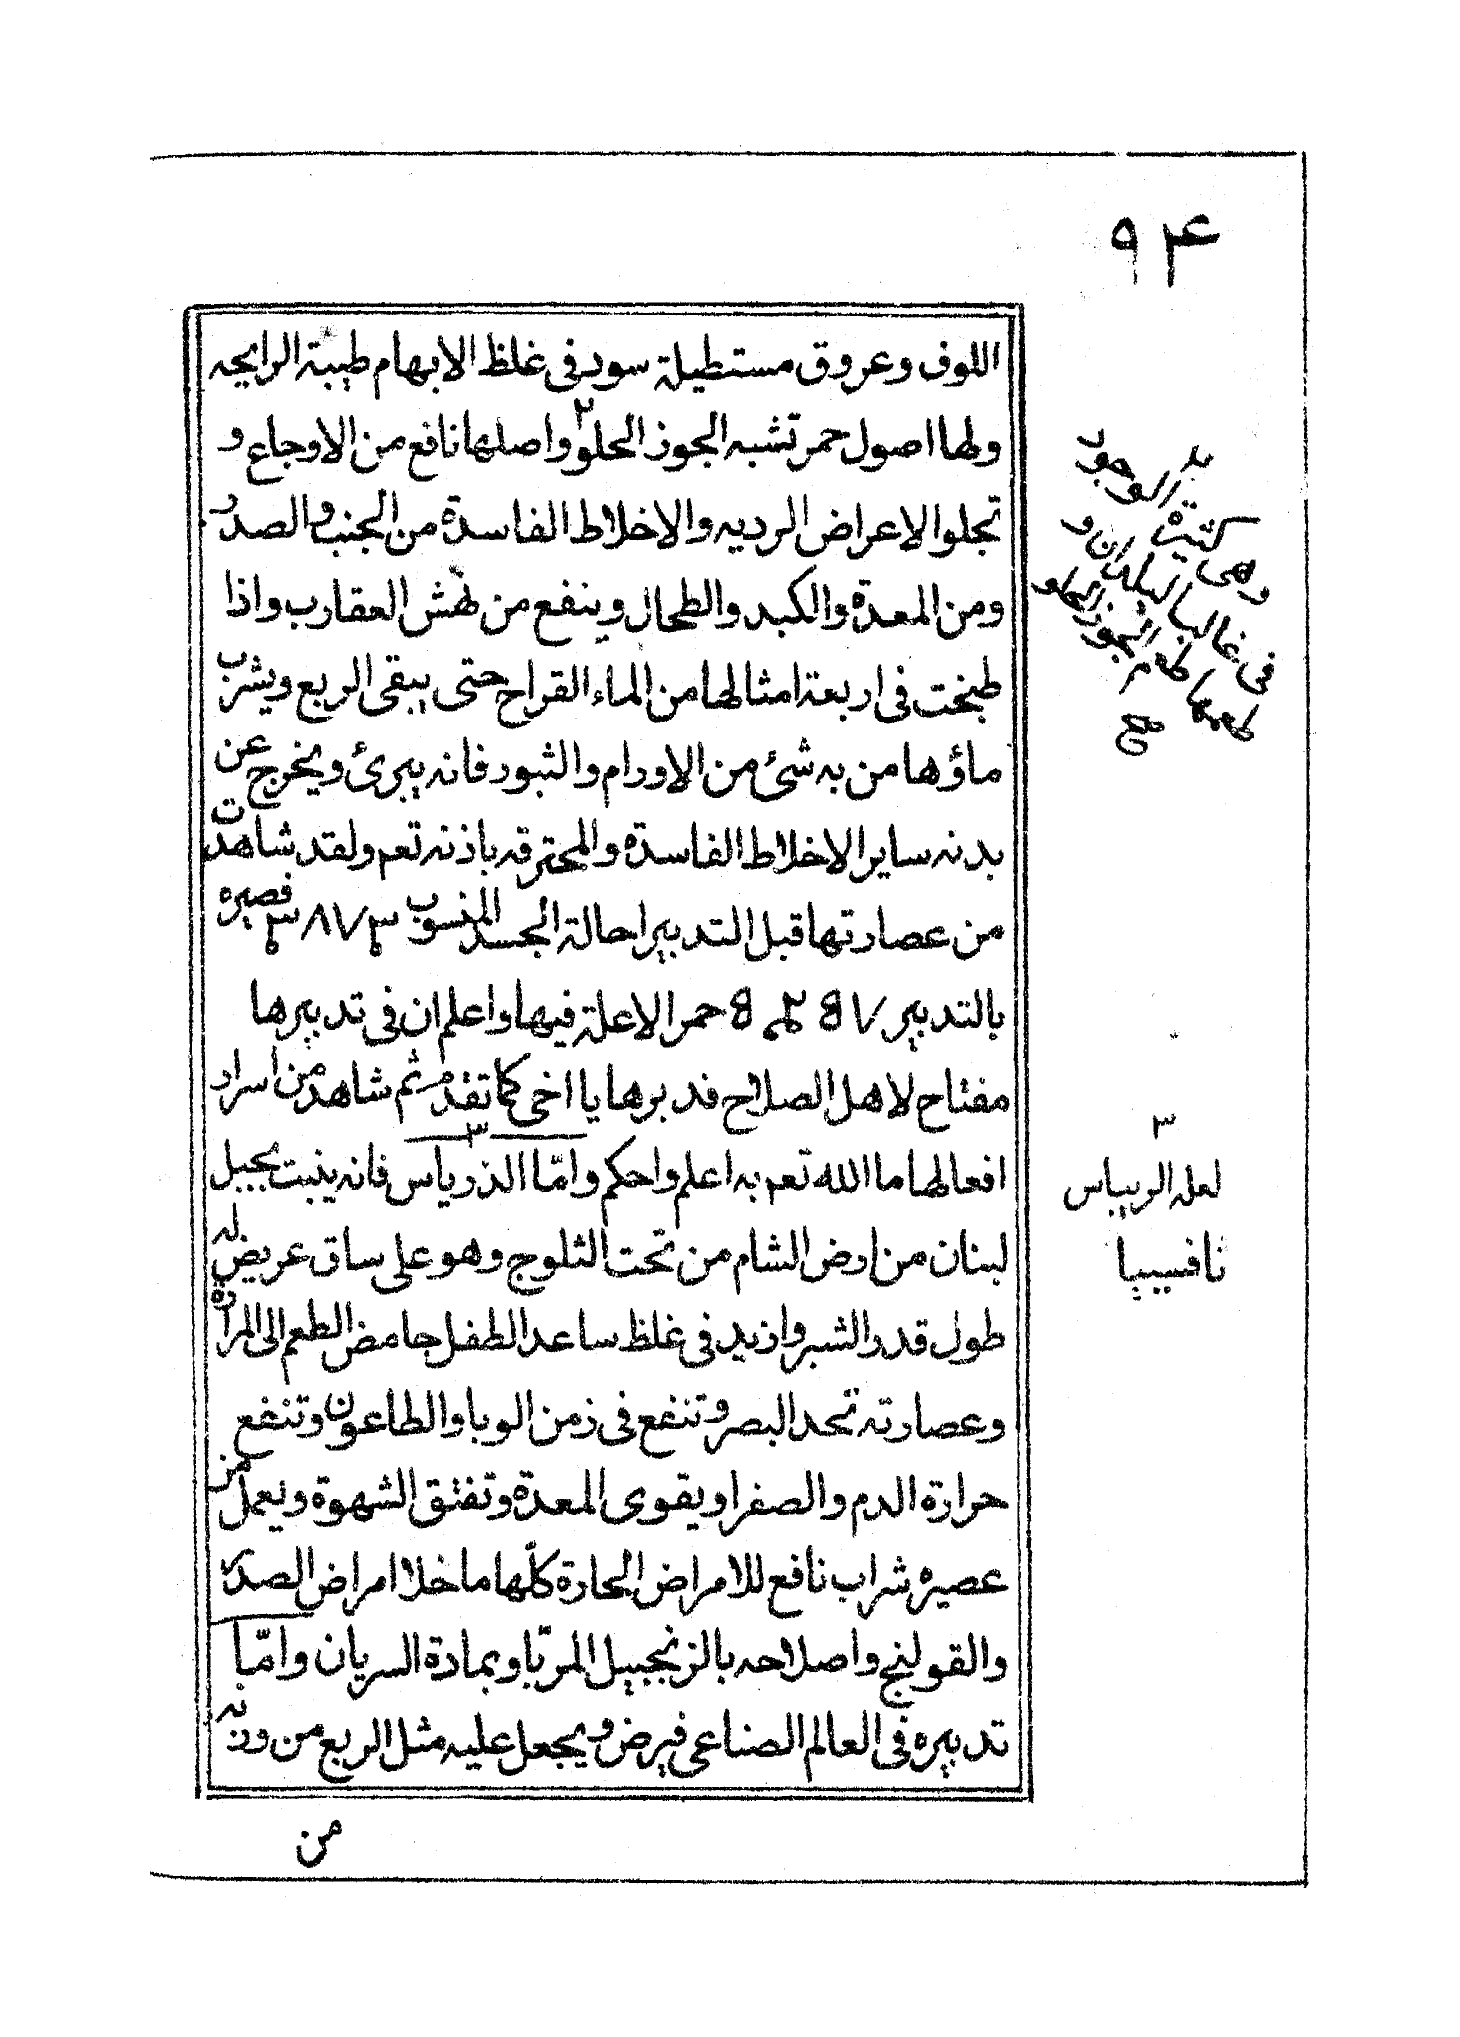 ٩٤
اللوف وعروق مستطيلة سود فى غلظ الابهام طيبة الرايحه
ولها اصول حمر تشبه الجوز الحلو٢ واصلها نافع من الاوجاع و
تجلوا الاعراض الرديه والاخلاط الفاسدة من الجنب والصدر
ومن المعدة والكبد والطحال وينفع من نهش العقارب واذا
طبخت فى اربعة امثالها من الماء القراح حتى يبقى الربع ويشرب
ماؤها من به شئ من الاورام والثبور فانه يبرئ ويخرج عن
بدنه ساير الاخلاط الفاسدة والمحترقه باذنه تعم ولقد شاهدت
من عصارتها قبل التدبير احالة الجسد المنسوب قصيره
بالتدبير حمر الاعلة فيها واعلم ان فى تدبيرها
مفتاح لاهل الصلاح فدبرها يا اخى كما تقدم ثم شاهد من اسرار
افعالها ما الله تعم به اعلم واحكم وامّا الذرياس٣ فانه ينبت بجبل
لبنان من ارض الشام من تحت الثلوج وهو على ساق عريض له
طول قدر الشبر وازيد فى غلظ ساعد الطفل حامض الطعم الى المرارة
وعصارته تحد البصر وتنفع فى زمن الوبا والطاعون وتنفع من
حرارة الدم والصفرا ويقوى المعدة وتفتق الشهوة ويعمل
عصيره شراب نافع للامراض الحارة كلّها ما خلا امراض الصدر
والقولنج واصلاحه بالزنجبيل المربّا وبمادة السريان وامّا
تدبيره فى العالم الصناعى فيرض ويجعل عليه مثل الربع من وزنه
من
وهى كثيرة الوجود
فى غالب البلدان و
طعمها طعم الجوز الحلو
صح
٣
لعله الريباس
ثافسيا